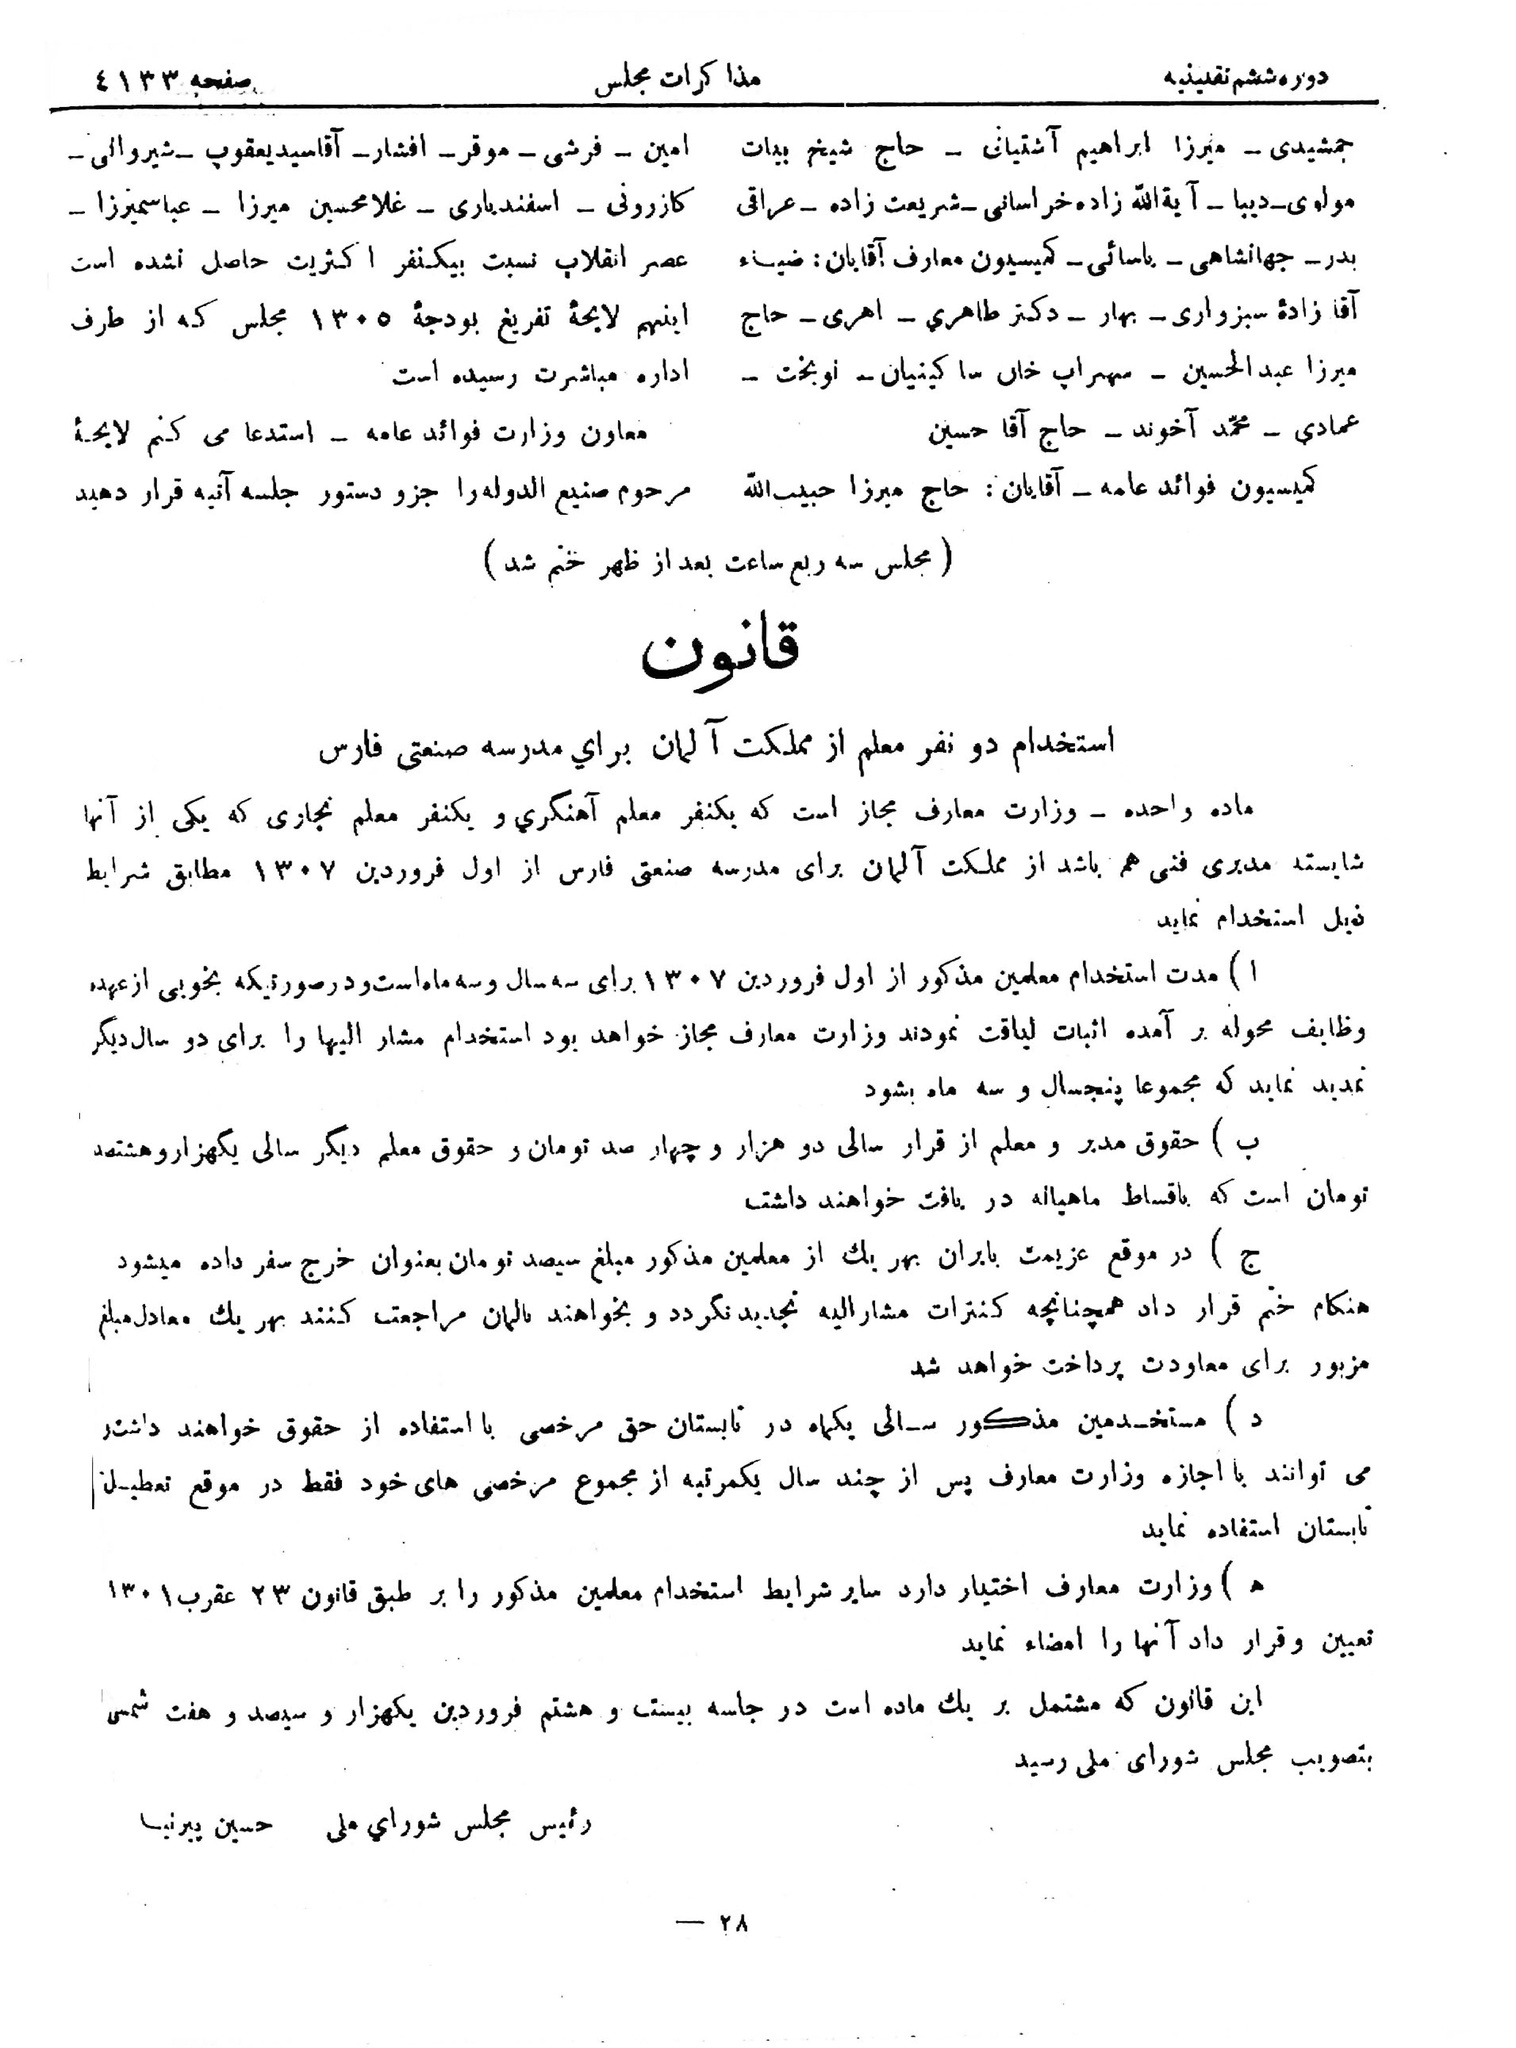 دوره ششم تقنینیه
مذاکرات مجلس
صفحه ٤١٣٣
جمشیدی ـ میرزا ابراهیم آشتیانی ـ حاج شیخ بیات
مولوی ـ دیبا ـ آیة‌الله زاده خراسانی ـ شریعت زاده ـ عراقی
بدر ـ جهانشاهی ـ یاسائی ـ کمیسیون معارف آقایان: ضیاء
آقا زادهٔ سبزواری ـ بهار ـ دکتر طاهري ـ اهری ـ حاج
میرزا عبدالحسین ـ سهراب خان ساکینیان ـ نوبخت ـ
عمادي ـ محمّد آخوند ـ حاج آقا حسین
کمیسیون فوائد عامه ـ آقایان: حاج میرزا حبیب‌الله
امین ـ فرشی ـ موقر ـ افشار ـ آقاسیدیعقوب ـ شیروانی ـ
کازرونی ـ اسفندیاری ـ غلامحسین میرزا ـ عباسمیرزا ـ
عصر انقلاب نسبت بیکنفر اکثریت حاصل نشده است
اینهم لایحهٔ تفریغ بودجهٔ ١٣٠٥ مجلس که از طرف
اداره مباشرت رسیده است
معاون وزارت فوائد عامه ـ استدعا می کنم لایحهٔ
مرحوم صنیع الدوله را جزو دستور جلسه آتیه قرار دهید
( مجلس سه ربع ساعت بعد از ظهر ختم شد )
قانون
استخدام دو نفر معلم از مملکت آلمان براي مدرسه صنعتی فارس
ماده واحده ـ وزارت معارف مجاز است که یکنفر معلم آهنگري و یکنفر معلم نجاری که یکی از آنها
شایسته مدیری فنی هم باشد از مملکت آلمان برای مدرسه صنعتی فارس از اول فروردین ١٣٠٧ مطابق شرایط
ذیل استخدام نماید
ا ) مدت استخدام معلمین مذکور از اول فروردین ١٣٠٧ برای سه سال و سه ماه است و در صورتیکه بخوبی از عهده
وظایف محوله بر آمده اثبات لیاقت نمودند وزارت معارف مجاز خواهد بود استخدام مشار الیها را برای دو سال دیگر
تمدید نماید که مجموعا پنجسال و سه ماه بشود
ب ) حقوق مدیر و معلم از قرار سالی دو هزار و چهار صد تومان و حقوق معلم دیگر سالی یکهزار و هشتصد
تومان است که باقساط ماهیانه در یافت خواهند داشت
ج ) در موقع عزیمت بایران بهر یك از معلمین مذکور مبلغ سیصد تومان بعنوان خرج سفر داده میشود
هنگام ختم قرار داد همچنانچه کنترات مشارالیه تجدید نگردد و بخواهند بالمان مراجعت کنند بهر یك معادل مبلغ
مزبور برای معاودت پرداخت خواهد شد
د ) مستخدمین مذکور سالی یکماه در تابستان حق مرخصی با استفاده از حقوق خواهند داشت و
می توانند با اجازه وزارت معارف پس از چند سال یکمرتبه از مجموع مرخصی های خود فقط در موقع تعطیل
تابستان استفاده نماید
ه ) وزارت معارف اختیار دارد سایر شرایط استخدام معلمین مذکور را بر طبق قانون ٢٣ عقرب ١٣٠١
تعیین و قرار داد آنها را امضاء نماید
این قانون که مشتمل بر یك ماده است در جلسه بیست و هشتم فروردین یکهزار و سیصد و هفت شمسی
بتصویب مجلس شورای ملی رسید
رئیس مجلس شوراي ملی حسین پیرنیا
— ٢٨